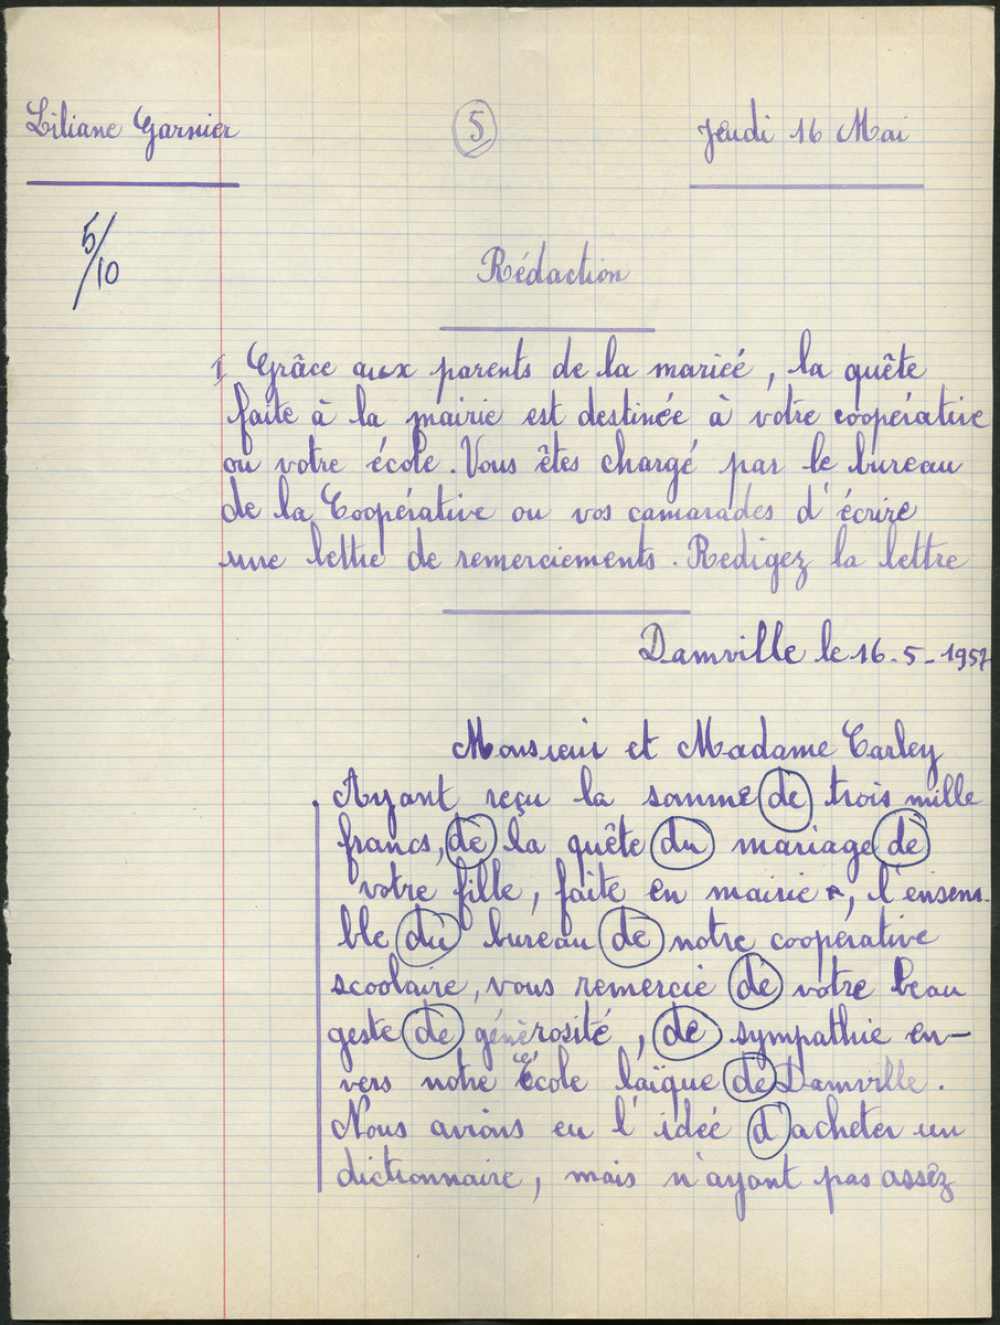 Liliane Garnier
5
Jeudi 16 Mai
5/10
Rédaction
I Grâce aux parents de la mariée, la quête
faite à la mairie est destinée à votre coopérative
ou votre école. Vous êtes chargé par le bureau
de la Coopérative ou vos camarades d'écrire
une lettre de remerciements. Redigez la lettre
Damville le 16-5-1957
Monsieur et Madame Carley
Ayant reçu la somme de trois mille
francs, de la quête du mariage de
votre fille, faite en mairie, l'ensem-
ble du bureau de notre coopérative
scoolaire, vous remercie de votre beau
geste de générosité, de sympathie en-
vers notre École laïque de Damville.
Nous avions eu l'idée d'acheter un
dictionnaire, mais n'ayant pas assez